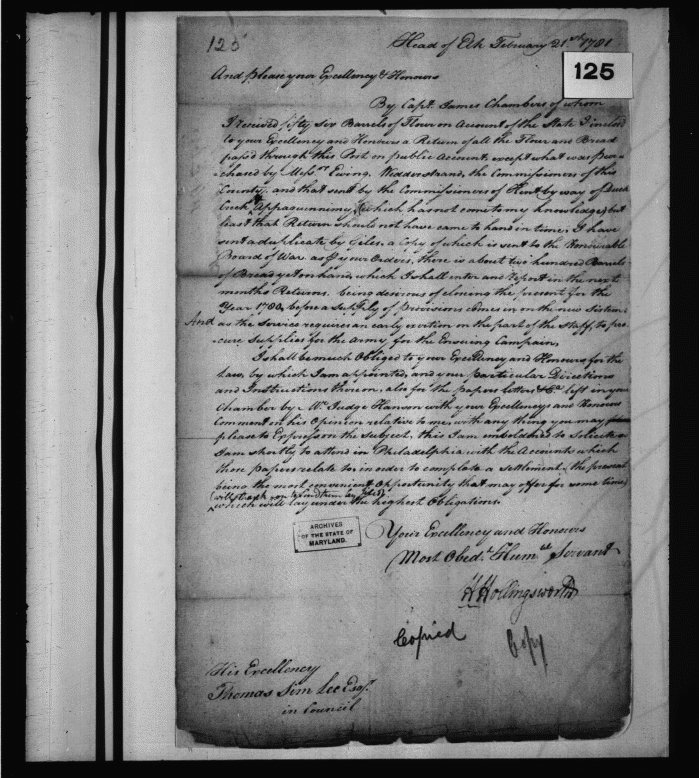 125
Head of Elk February 21st 1781
125
And please your Excellency & Honours
By Capt. James Chambers of whom
I received fifty Six Barrels of Flour on Account of the State I inclose
to your Excellency and Honours a Return of all the Flour and Bread
passd through this Post on public Account, except what was Pur-
chased by Messrs Ewing, Widderstrand, the Commissioners of this
County, and that sent by the Commissioners of Kent by way of Duck
Creek & Appaquinnimy, (which has not come to my knowledge) but
least that Return should not have came to hand in time; I have
sent a duplicate by Giles, a Copy of which is sent to the Honourable
Board of War as your Orders, there is about two hundred Barrels
of Bread yet on hand, which I shall enter and report in the next
months Returns, being desirous of closing the present for the
Year 1780, before a Supply of provisions comes in on the new System,
And as the Service requires an early exertion on the part of the Staff, to pro-
cure Supplies for the Army for the Ensuing Campain,
I shall be much Obliged to your Excellency and Honours for the
Law, by which I am appointed, and your particular Directions
and Instructions thereon, also for the papers letters &Ca left in your
Chamber by Mr Judge Hanson with your Excellencys and Honours
Comment on his Opinion relative to me, with any thing you may
please to Express on the Subject, this I am emboldned to Solicit as
I am shortly to attend in Philadelphia with the Accounts which
those papers relate to in order to complate a Settlement, the present
being the most convenient Opportunity that may offer for some time,
which will lay under the highest Obligations.
ARCHIVES
OF THE STATE OF
MARYLAND.
Your Excellency and Honours
Most Obedt Humble Servant
H Hollingsworth
Copied
Copy
His Excellency
Thomas Sim Lee Esqr.
in Council